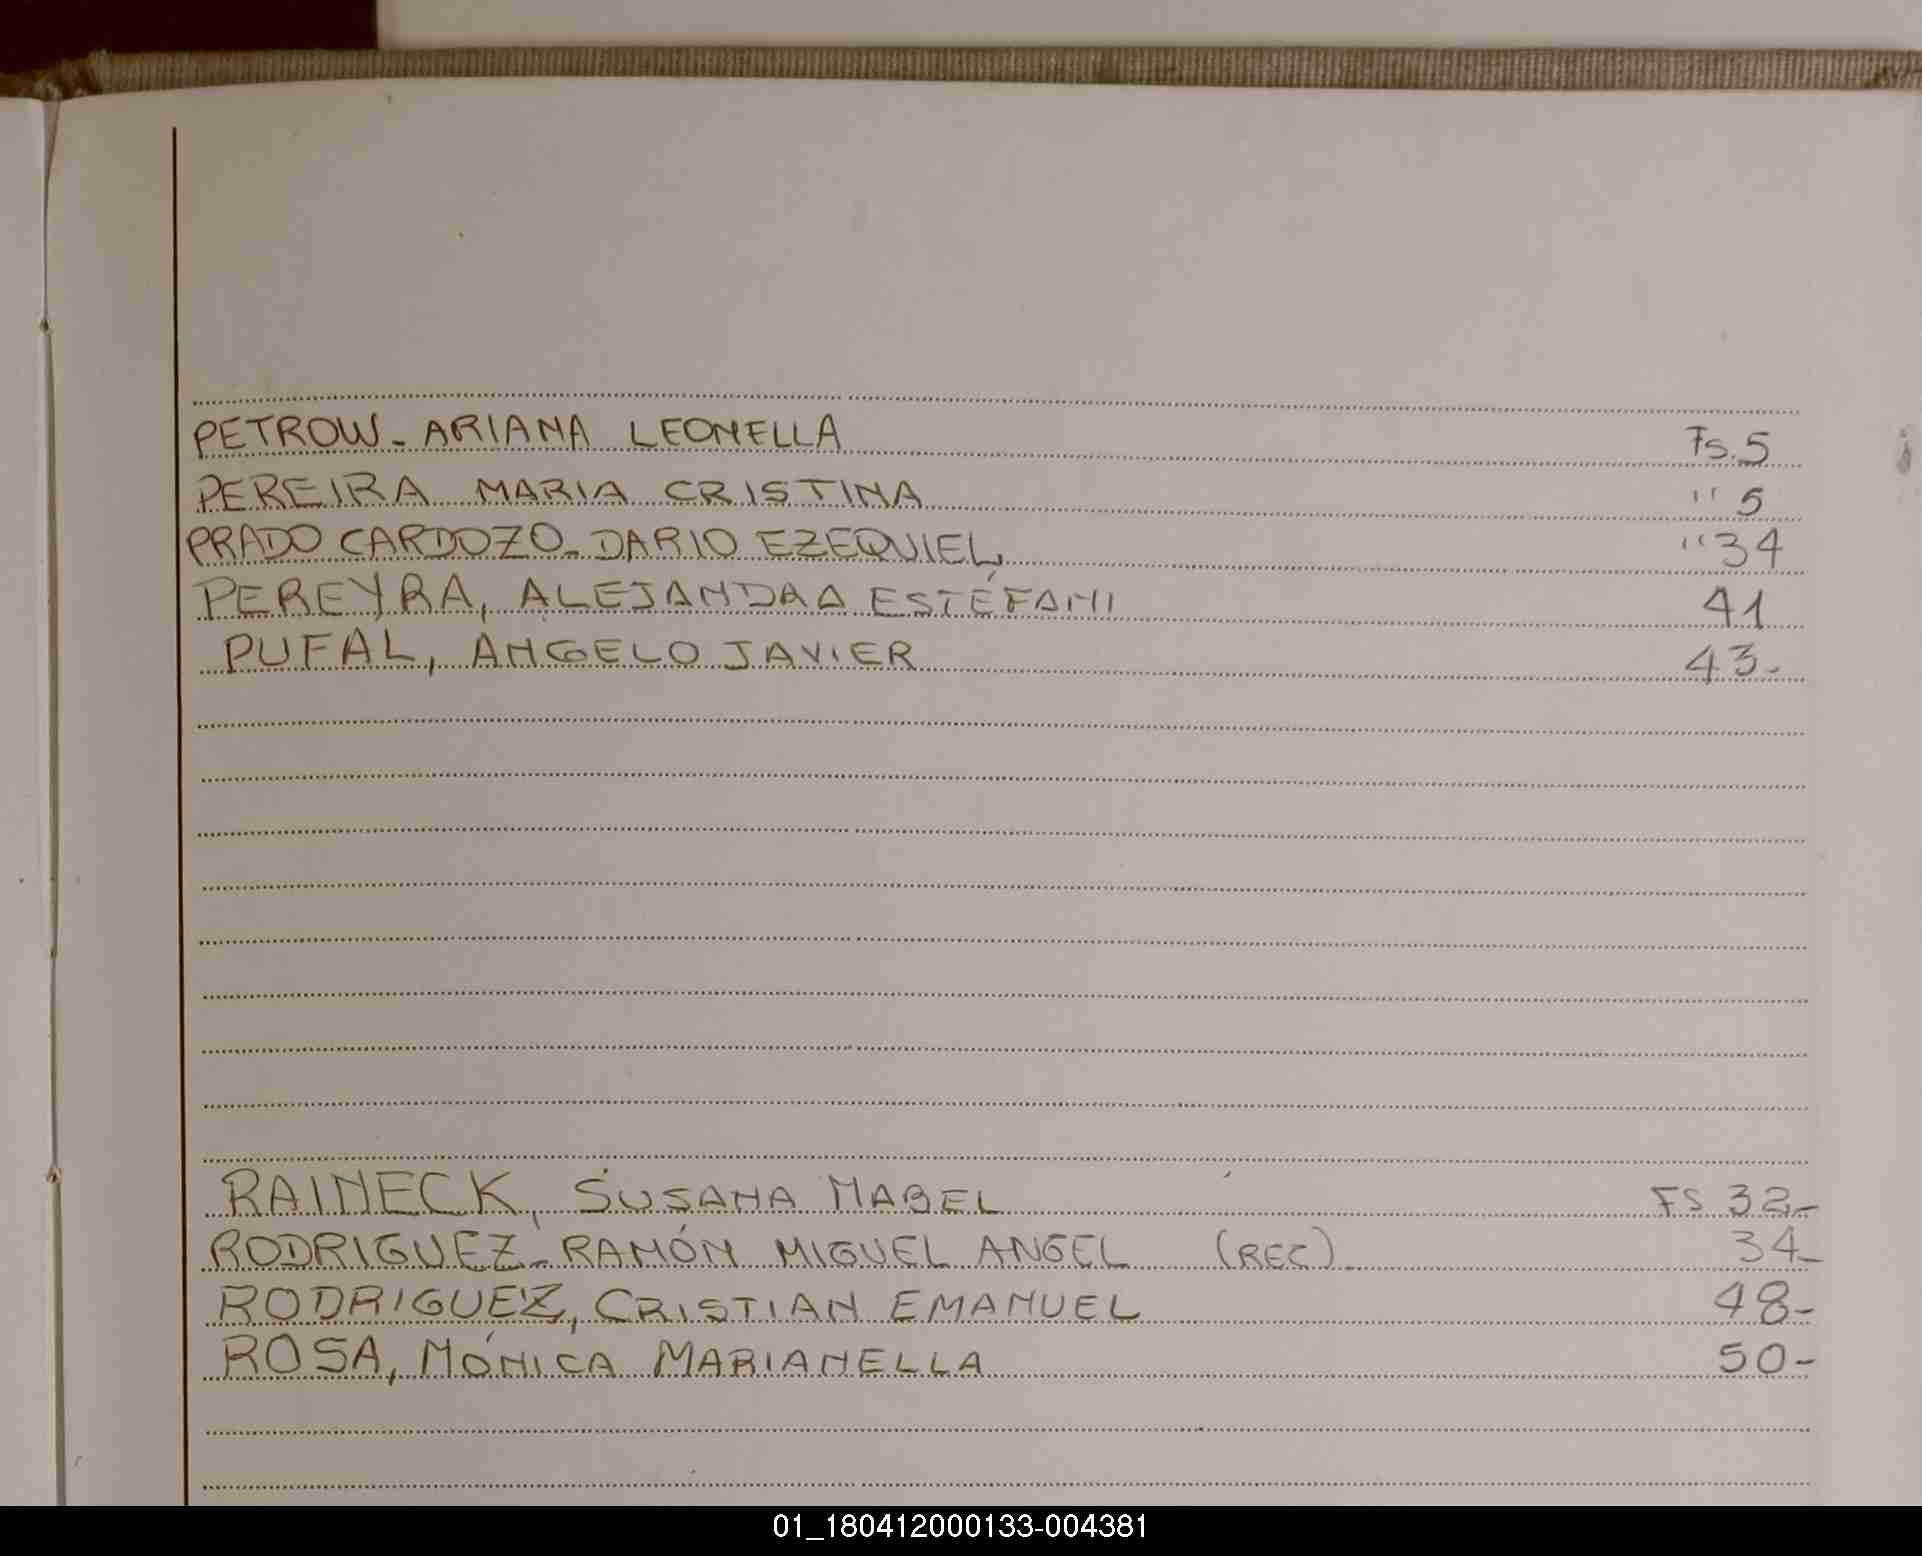 PETROW - ARIANA LEONELLA Fs. 5
PEREIRA MARIA CRISTINA " 5
PRADO CARDOZO - DARIO EZEQUIEL " 34
PEREYRA, ALEJANDRA ESTÉFANI 41
PUFAL, ANGELO JAVIER 43-
RAINECK, SUSANA MABEL FS 32-
RODRIGUEZ - RAMÓN MIGUEL ANGEL (REC) 34-
RODRIGUEZ, CRISTIAN EMANUEL 48-
ROSA, MÓNICA MARIANELLA 50-
01_180412000133-004381